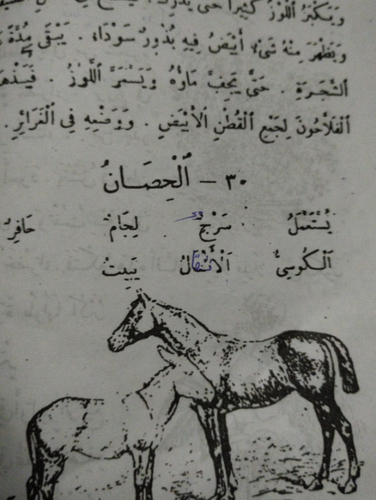 وَيَكْبُرُ اللَّوْزُ كَثِيرًا حَتَّى
وَيَظْهَرَ مِنْهُ شَيْءٌ أَبْيَضُ فِيهِ بُذُورٌ سَوْدَاءُ. يَبْقَى مُدَّةً
الشَّجَرَةِ. حَتَّى يَجِفَّ مَاؤُهُ وَيَسْمَرَّ اللَّوْزُ.
الْفَلَّاحُونَ لِجَمْعِ الْقُطْنِ الْأَبْيَضِ. وَوَضْعِهِ فِي الْغَرَائِرِ.
٣٠ – اَلْحِصَانُ
يُسْتَعْمَلُ سَرْجٌ لِجَامٌ حَافِرٌ
اَلْكُوسِيُّ اَلْأَثْقَالُ يَبِيتُ